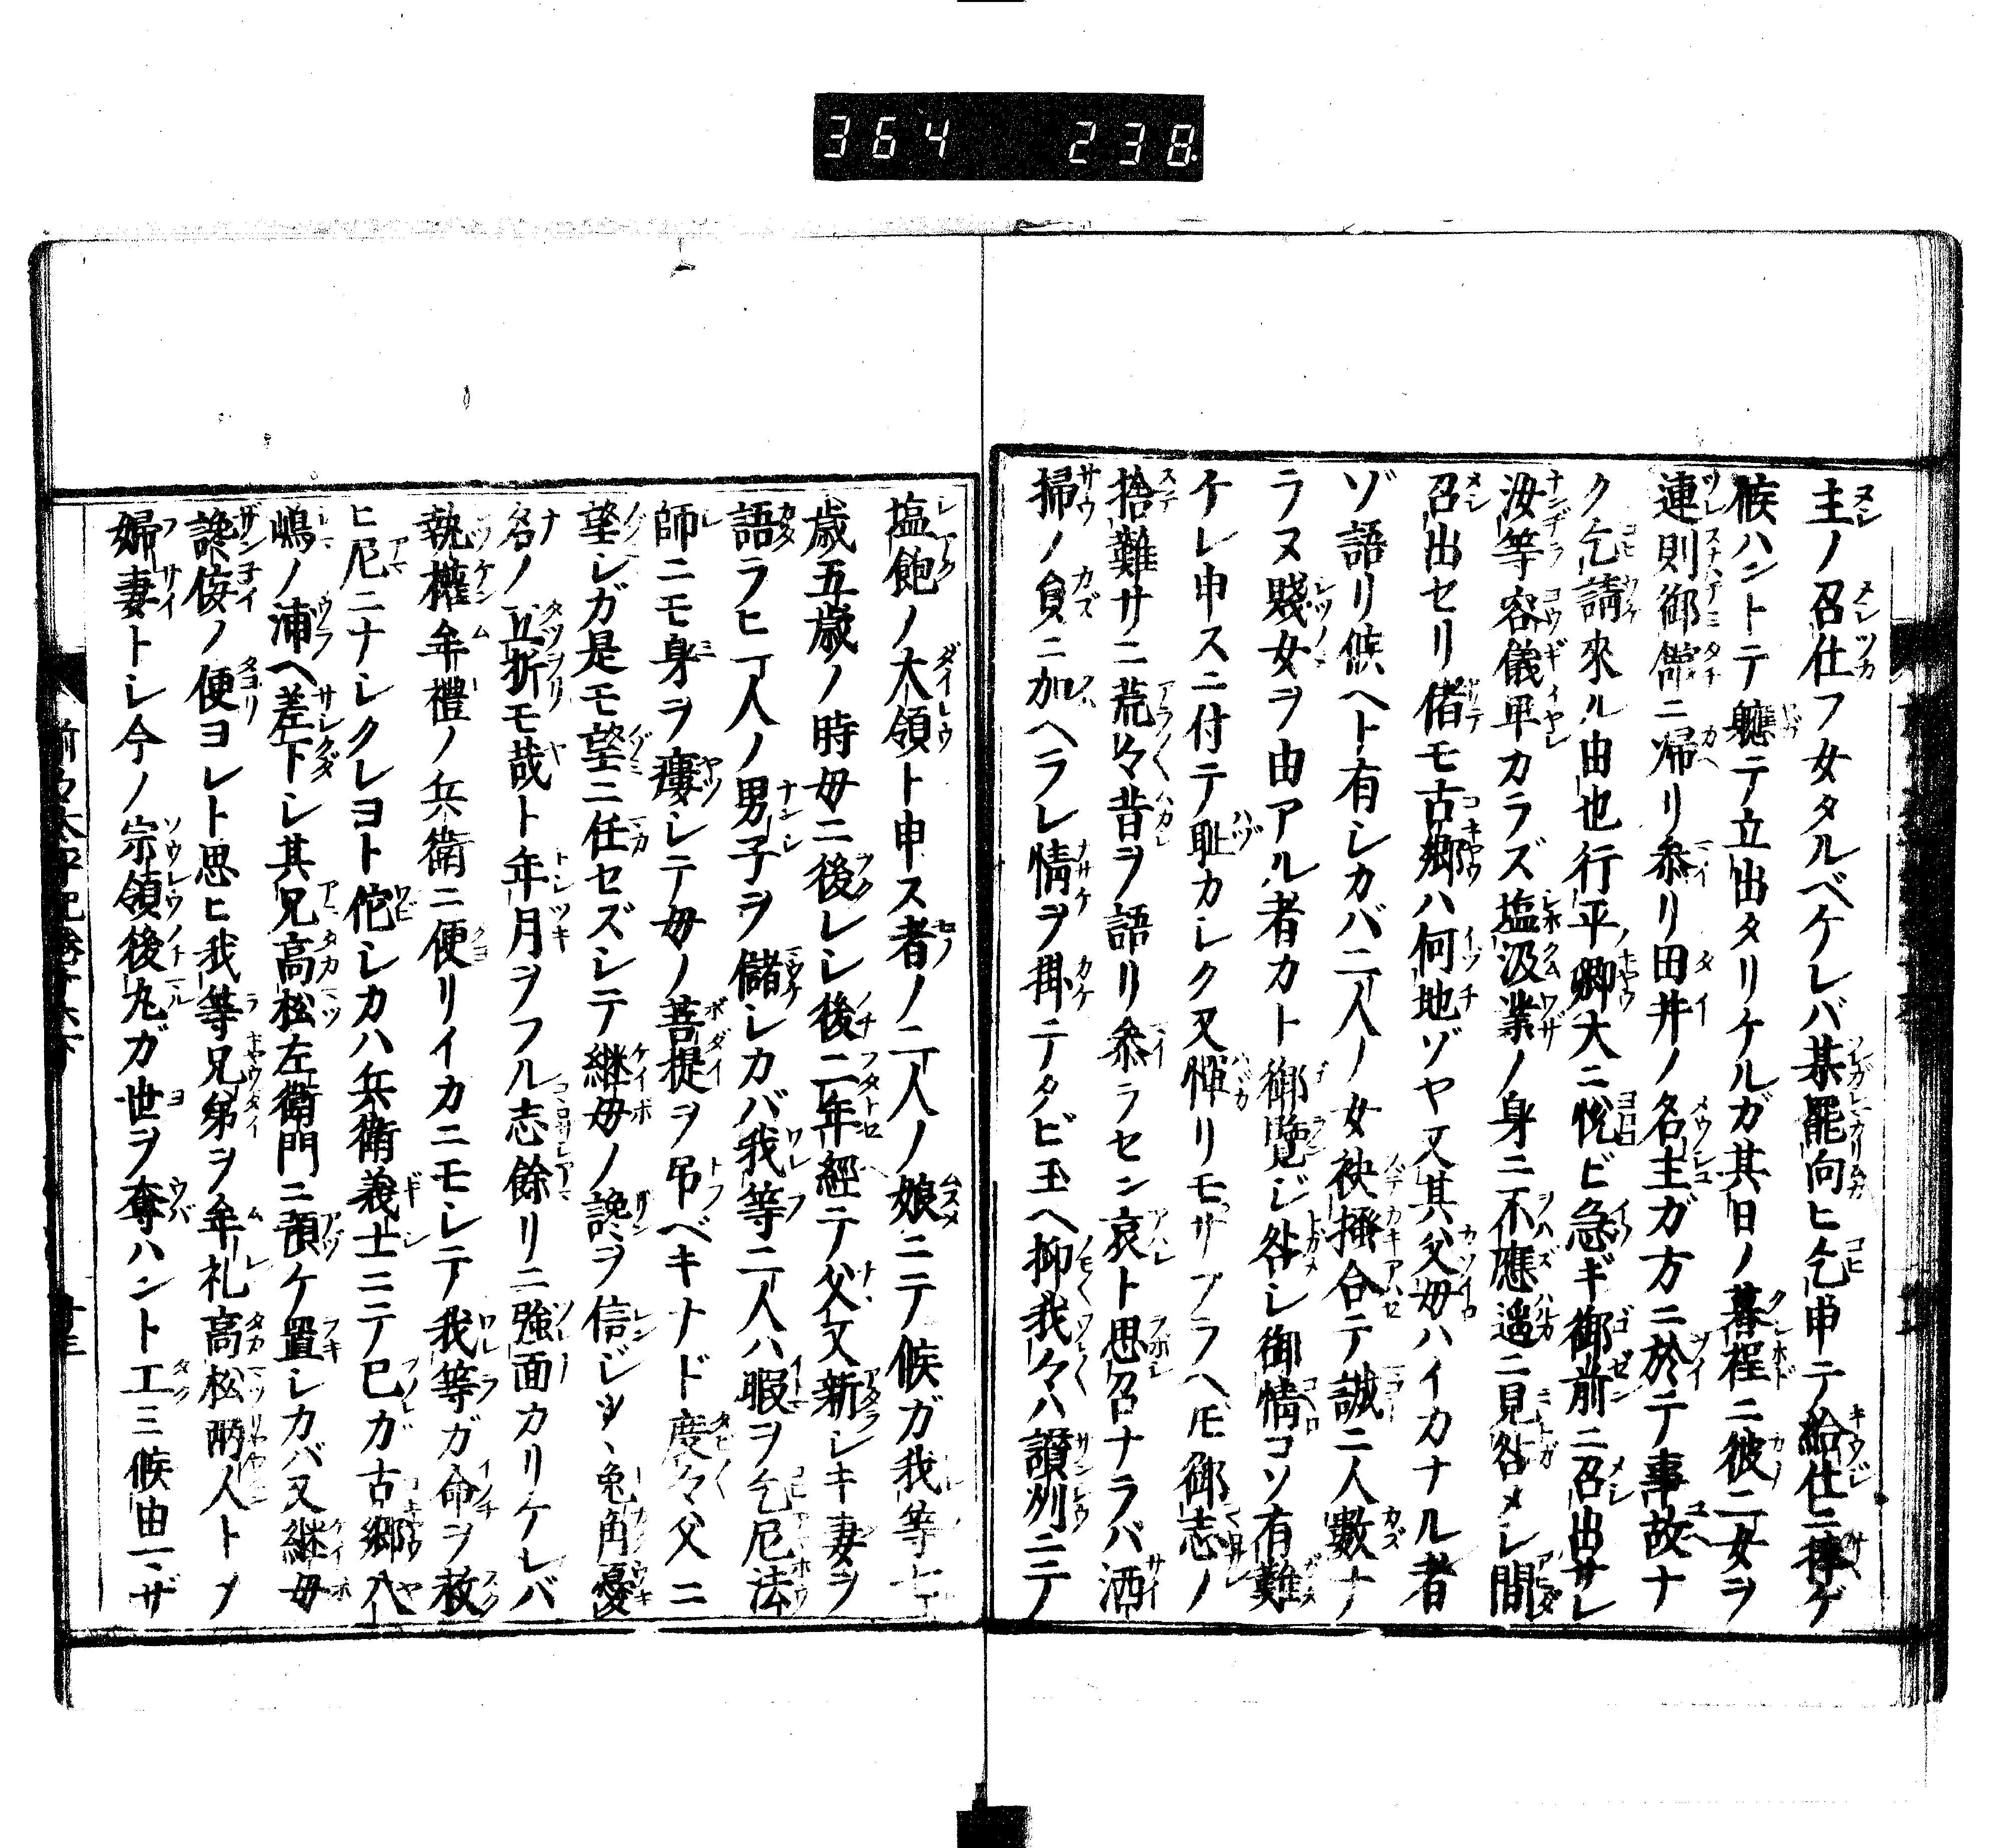 364 238
主ノ召仕フ女タルベケレバ某罷向ヒ乞申テ給仕ニ捧ゲ
候ハントテ軈テ立出タリケルガ其日ノ暮程ニ彼二女ヲ
連則御館ニ帰リ参リ田井ノ名主ガ方ニ於テ事故ナ
ク乞請來ル由也行平卿大ニ悦ビ急ギ御前ニ召出サレ
汝等容儀甲カラズ塩汲業ノ身ニ不應遥ニ見咎メシ間
召出セリ偖モ古郷ハ何地ゾヤ又其父毋ハイカナル者
ゾ語リ候ヘト有シカバ二人ノ女袂掻合テ誠ニ人數ナ
ラヌ賤女ヲ由アル者カト御覽ジ咎シ御情コソ有難
ケレ申スニ付テ耻カシク又憚リモサブラヘ𪜈御志ノ
捨難サニ荒々昔ヲ語リ参ラセン哀ト思召ナラバ洒
掃ノ負ニ加ヘラレ情ヲ掛テタビ玉ヘ抑我々ハ讃州ニテ
塩飽ノ大領ト申ス者ノ二人ノ娘ニテ候ガ我等七
歳五歳ノ時毋ニ後レシ後二年經テ父又新シキ妻ヲ
語ラヒ一人ノ男子ヲ儲シカバ我等二人ハ暇ヲ乞尼法
師ニモ身ヲ窶シテ毋ノ菩提ヲ吊ベキナド度々父ニ
望シガ是モ望ニ任セズシテ継毋ノ讒ヲ信ジツヽ兎角憂
名ノ立折モ哉ト年月ヲフル志餘リニ強面カリケレバ
執權牟禮ノ兵衛ニ便リイカニモシテ我等ガ命ヲ救
ヒ尼ニナシクレヨト佗シカハ兵衛義士ニテ已ガ古郷八
嶋ノ浦ヘ差下シ其兄高松左衛門ニ預ケ置シカバ又継毋
讒侫ノ便ヨシト思ヒ我等兄弟ヲ牟礼高松兩人トノ
婦妻トシ今ノ宗領後丸ガ世ヲ奪ハント工ミ候由マザ